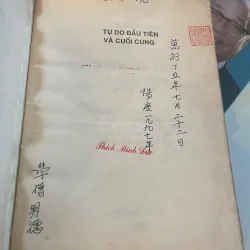 TỰ DO ĐẦU TIÊN
VÀ CUỐI CÙNG
萬行丁丑年七月二十二日
陽歷一九九七年
Thích Minh Đức
學僧明德